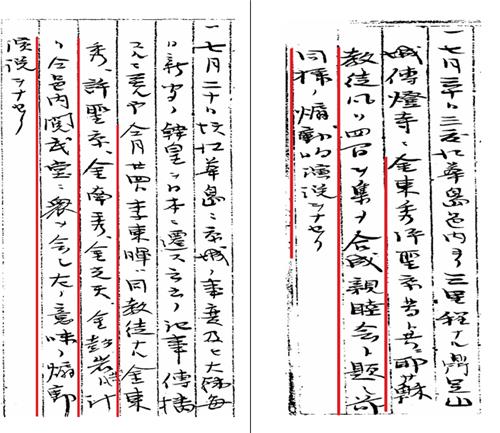 一七月三十日江華島邑内ヨリ三里程ナル鼎足山
城傳燈寺ニ金東秀許聖京等ト共ニ耶蘇
教徒凡ソ四百ヲ集メ合成親睦会ト題シ前
同様ノ煽動的演説ヲナセリ
一七月二十日頃江華島ニ京城ノ事変及ヒ大阪毎
日新聞ノ韓皇ヲ日本ニ遷ス云云ノ記事傳播
スルニ至ルヤ仝月廿四日李東暉ハ同教徒ナル金東
秀、許聖京、金南秀、金光天、金彭岩等ト計
リ仝邑内閲武堂ニ衆ヲ会シ左ノ意味ノ煽動
演説ヲナセリ